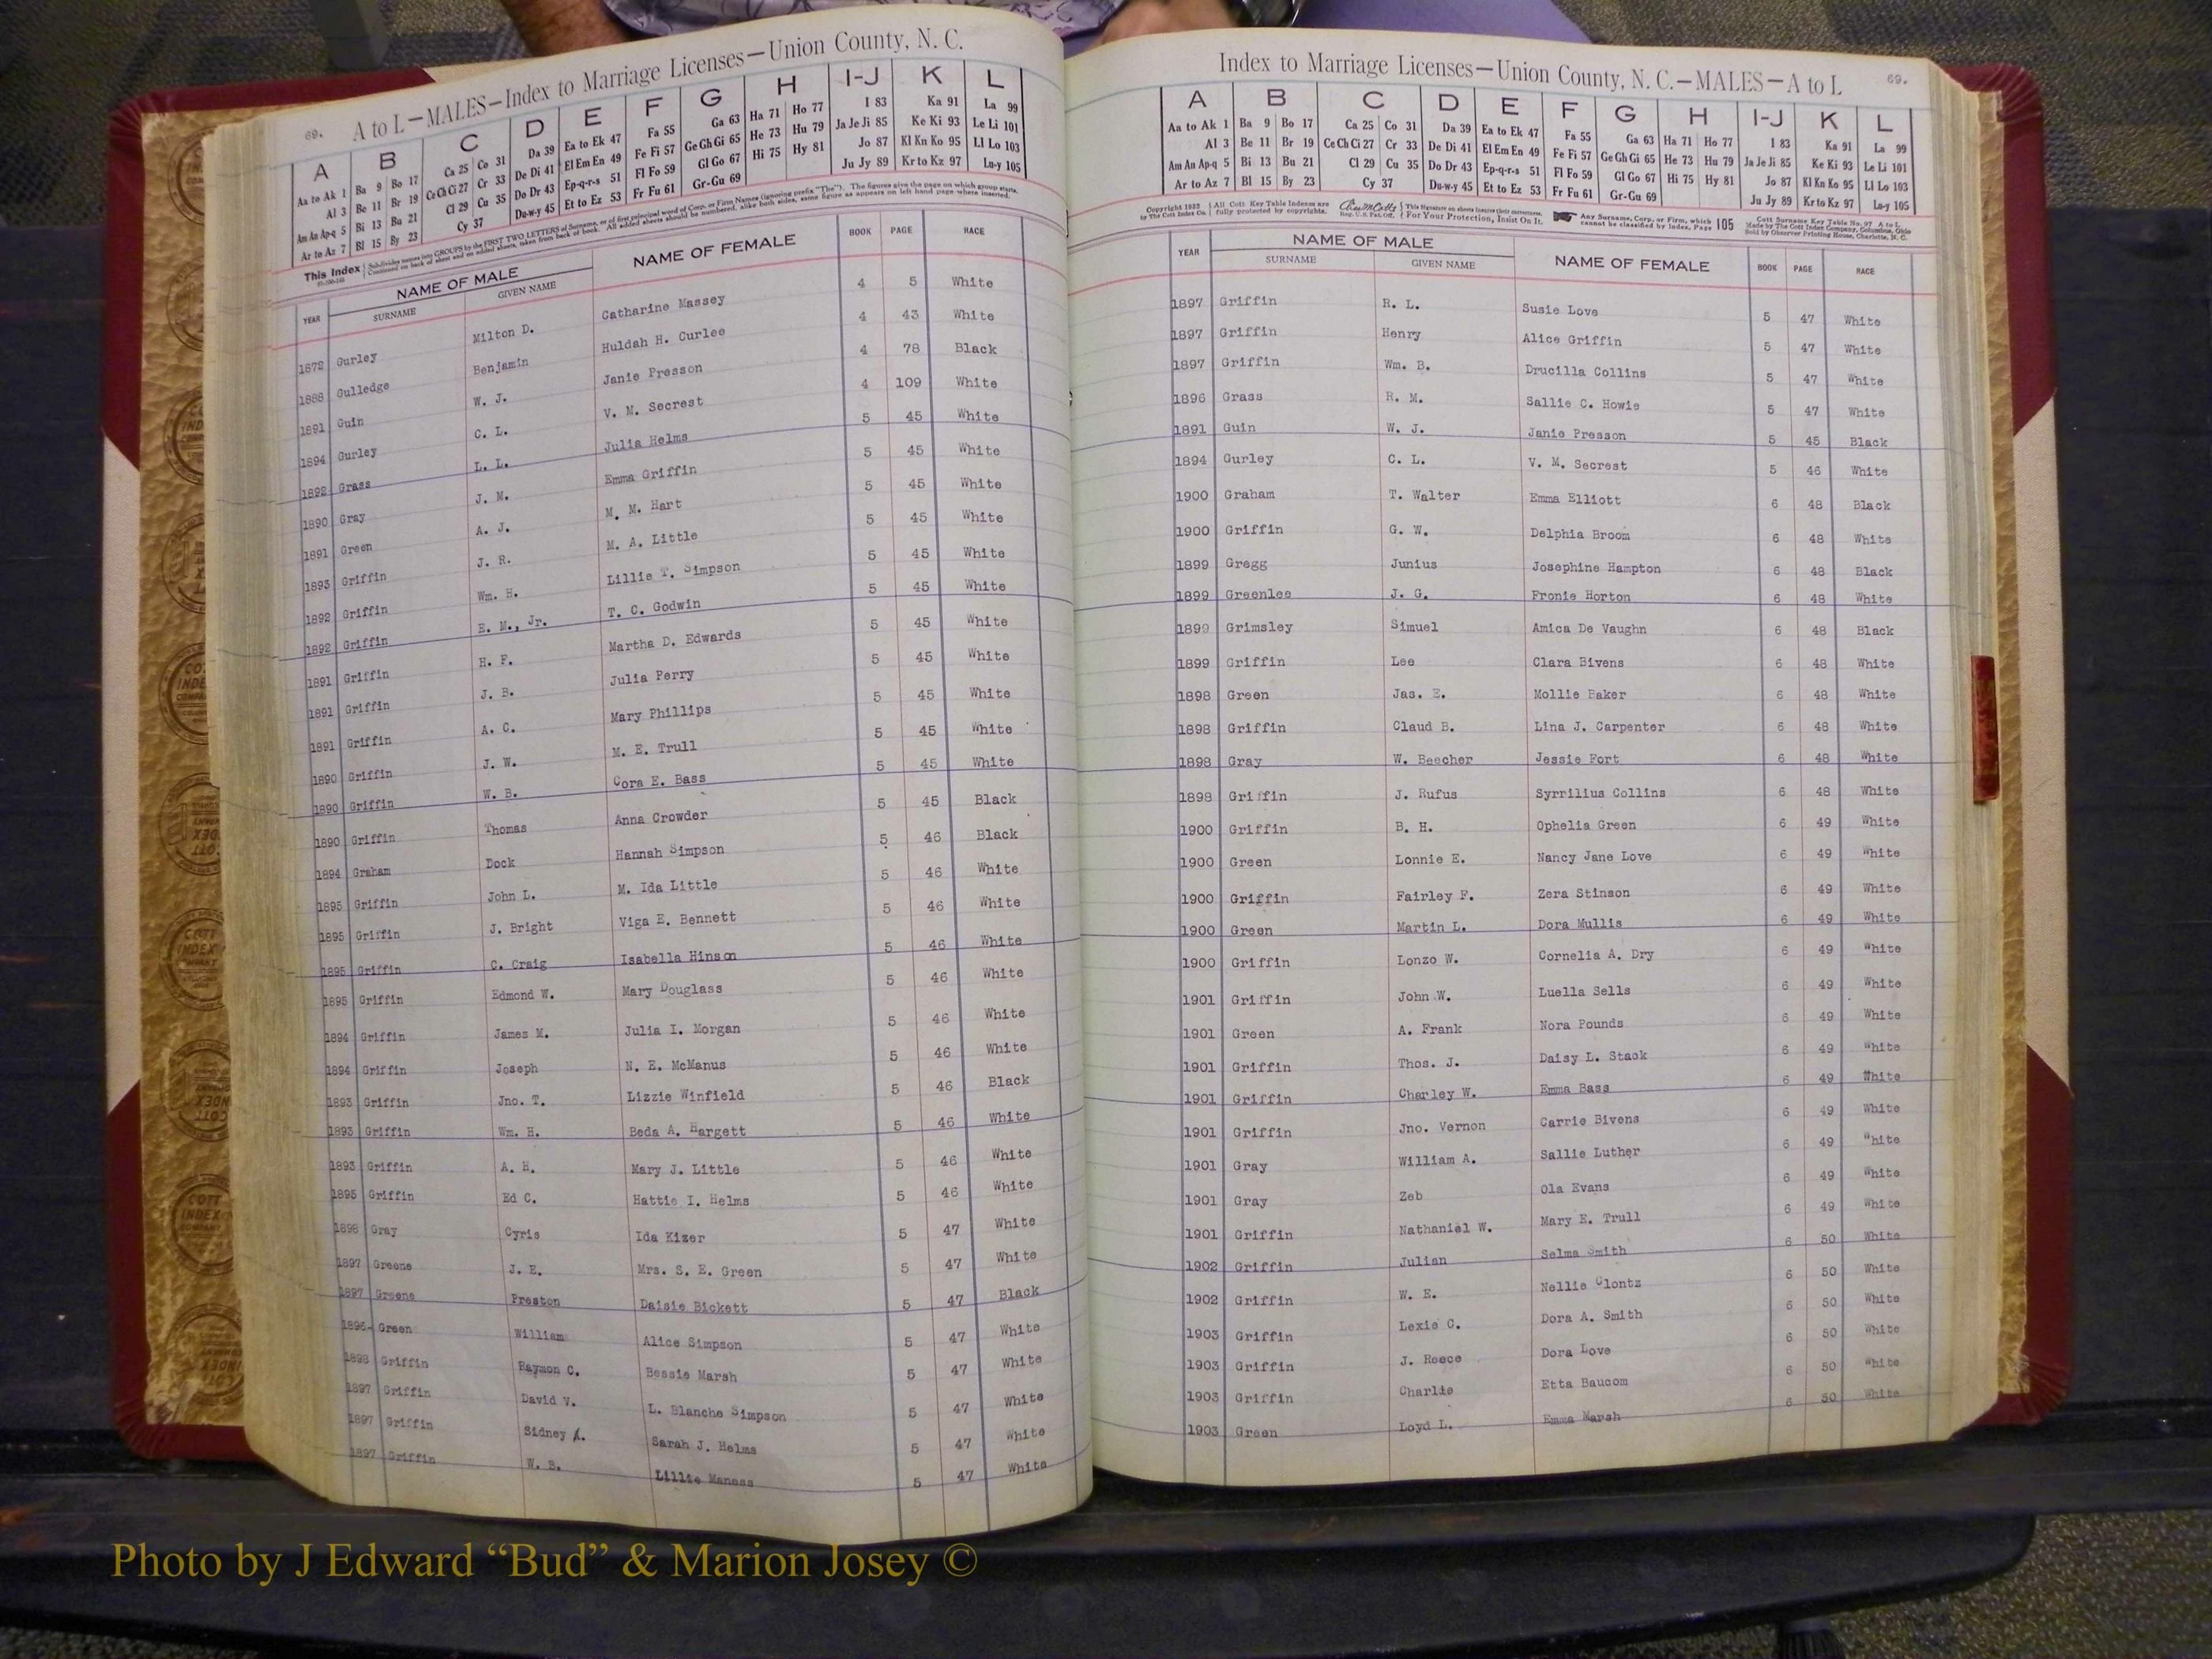 69. A to L—MALES—Index to Marriage Licenses—Union County, N. C.
A B C D E F G H I-J K L
Aa to Ak 1 Ba 9 Bo 17 Ca 25 Co 31 Da 39 Ea to Ek 47 Fa 55 Ga 63 Ha 71 Ho 77 I 83 Ka 91 La 99
Al 3 Be 11 Br 19 Ce Ch Ci 27 Cr 33 De Di 41 El Em En 49 Fe Fi 57 Ge Gh Gi 65 He 73 Hu 79 Ja Je Ji 85 Ke Ki 93 Le Li 101
Am An Ap-q 5 Bi 13 Bu 21 Cl 29 Cu 35 Do Dr 43 Ep-q-r-s 51 Fl Fo 59 Gl Go 67 Hi 75 Hy 81 Jo 87 Kl Kn Ko 95 Ll Lo 103
Ar to Az 7 Bl 15 By 23 Cy 37 Du-w-y 45 Et to Ez 53 Fr Fu 61 Gr-Gu 69 Ju Jy 89 Kr to Kz 97 Lu-y 105
This Index Subdivides names into GROUPS by the FIRST TWO LETTERS of Surname, or of first principal word of Corp. or Firm Names (ignoring prefix "The"). The figures give the page on which group starts.
Continued on back of sheet and on added sheets, taken from back of book. All added sheets should be numbered, alike both sides, same figure as appears on left hand page where inserted.
YEAR NAME OF MALE NAME OF FEMALE BOOK PAGE RACE
SURNAME GIVEN NAME
1872 Gurley Milton D. Catharine Massey 4 5 White
1888 Gulledge Benjamin Huldah H. Curlee 4 43 White
1891 Guin W. J. Janie Presson 4 78 Black
1894 Gurley C. L. V. M. Secrest 4 109 White
1892 Grass L. L. Julia Helms 5 45 White
1890 Gray J. M. Emma Griffin 5 45 White
1891 Green A. J. M. M. Hart 5 45 White
1893 Griffin J. R. M. A. Little 5 45 White
1892 Griffin Wm. H. Lillie T. Simpson 5 45 White
1892 Griffin E. M., Jr. T. C. Godwin 5 45 White
1891 Griffin H. F. Martha D. Edwards 5 45 White
1891 Griffin J. B. Julia Perry 5 45 White
1891 Griffin A. C. Mary Phillips 5 45 White
1890 Griffin J. W. M. E. Trull 5 45 White
1890 Griffin W. B. Cora E. Bass 5 45 White
1890 Griffin Thomas Anna Crowder 5 45 Black
1894 Graham Dock Hannah Simpson 5 46 Black
1895 Griffin John L. M. Ida Little 5 46 White
1895 Griffin J. Bright Viga E. Bennett 5 46 White
1895 Griffin C. Craig Isabella Hinson 5 46 White
1895 Griffin Edmond W. Mary Douglass 5 46 White
1894 Griffin James M. Julia I. Morgan 5 46 White
1894 Griffin Joseph N. E. McManus 5 46 White
1893 Griffin Jno. T. Lizzie Winfield 5 46 Black
1893 Griffin Wm. H. Beda A. Hargett 5 46 White
1893 Griffin A. H. Mary J. Little 5 46 White
1895 Griffin Ed C. Hattie I. Helms 5 46 White
1898 Gray Cyris Ida Kizer 5 47 White
1897 Greene J. E. Mrs. S. E. Green 5 47 White
1897 Greene Preston Daisie Bickett 5 47 Black
1896 Green William Alice Simpson 5 47 White
1898 Griffin Raymon C. Bessie Marsh 5 47 White
1897 Griffin David V. L. Blanche Simpson 5 47 White
1897 Griffin Sidney A. Sarah J. Helms 5 47 White
1897 Griffin W. B. Lillie Maness 5 47 White
Index to Marriage Licenses—Union County, N. C.—MALES—A to L 69.
A B C D E F G H I-J K L
Aa to Ak 1 Ba 9 Bo 17 Ca 25 Co 31 Da 39 Ea to Ek 47 Fa 55 Ga 63 Ha 71 Ho 77 I 83 Ka 91 La 99
Al 3 Be 11 Br 19 Ce Ch Ci 27 Cr 33 De Di 41 El Em En 49 Fe Fi 57 Ge Gh Gi 65 He 73 Hu 79 Ja Je Ji 85 Ke Ki 93 Le Li 101
Am An Ap-q 5 Bi 13 Bu 21 Cl 29 Cu 35 Do Dr 43 Ep-q-r-s 51 Fl Fo 59 Gl Go 67 Hi 75 Hy 81 Jo 87 Kl Kn Ko 95 Ll Lo 103
Ar to Az 7 Bl 15 By 23 Cy 37 Du-w-y 45 Et to Ez 53 Fr Fu 61 Gr-Gu 69 Ju Jy 89 Kr to Kz 97 Lu-y 105
Copyright 1932 All Cott Key Table Indexes are This Signature on sheets insures their correctness. Any Surname, Corp. or Firm, which 105 Cott Surname Key Table No. 97 A to L
by The Cott Index Co. fully protected by copyrights. Reg. U.S. Pat. Off. For Your Protection, Insist On It. cannot be classified by Index, Page Made by The Cott Index Company, Columbus, Ohio
Sold by Observer Printing House, Charlotte, N. C.
YEAR NAME OF MALE NAME OF FEMALE BOOK PAGE RACE
SURNAME GIVEN NAME
1897 Griffin R. L. Susie Love 5 47 White
1897 Griffin Henry Alice Griffin 5 47 White
1897 Griffin Wm. B. Drucilla Collins 5 47 White
1896 Grass R. M. Sallie C. Howie 5 47 White
1891 Guin W. J. Janie Presson 5 45 Black
1894 Gurley C. L. V. M. Secrest 5 46 White
1900 Graham T. Walter Emma Elliott 6 48 Black
1900 Griffin G. W. Delphia Broom 6 48 White
1899 Gregg Junius Josephine Hampton 6 48 Black
1899 Greenlee J. G. Fronie Horton 6 48 White
1899 Grimsley Simuel Amica De Vaughn 6 48 Black
1899 Griffin Lee Clara Bivens 6 48 White
1898 Green Jas. E. Mollie Baker 6 48 White
1898 Griffin Claud B. Lina J. Carpenter 6 48 White
1898 Gray W. Beecher Jessie Fort 6 48 White
1898 Griffin J. Rufus Syrrilius Collins 6 48 White
1900 Griffin B. H. Ophelia Green 6 49 White
1900 Green Lonnie E. Nancy Jane Love 6 49 White
1900 Griffin Fairley F. Zera Stinson 6 49 White
1900 Green Martin L. Dora Mullis 6 49 White
1900 Griffin Lonzo W. Cornelia A. Dry 6 49 White
1901 Griffin John W. Luella Sells 6 49 White
1901 Green A. Frank Nora Pounds 6 49 White
1901 Griffin Thos. J. Daisy L. Stack 6 49 White
1901 Griffin Charley W. Emma Bass 6 49 White
1901 Griffin Jno. Vernon Carrie Bivens 6 49 White
1901 Gray William A. Sallie Luther 6 49 White
1901 Gray Zeb Ola Evans 6 49 White
1901 Griffin Nathaniel W. Mary E. Trull 6 49 White
1902 Griffin Julian Selma Smith 6 50 White
1902 Griffin W. E. Nellie Clontz 6 50 White
1903 Griffin Lexie C. Dora A. Smith 6 50 White
1903 Griffin J. Reece Dora Love 6 50 White
1903 Griffin Charlie Etta Baucom 6 50 White
1903 Green Loyd L. Emma Marsh 6 50 White
Photo by J Edward “Bud” & Marion Josey ©